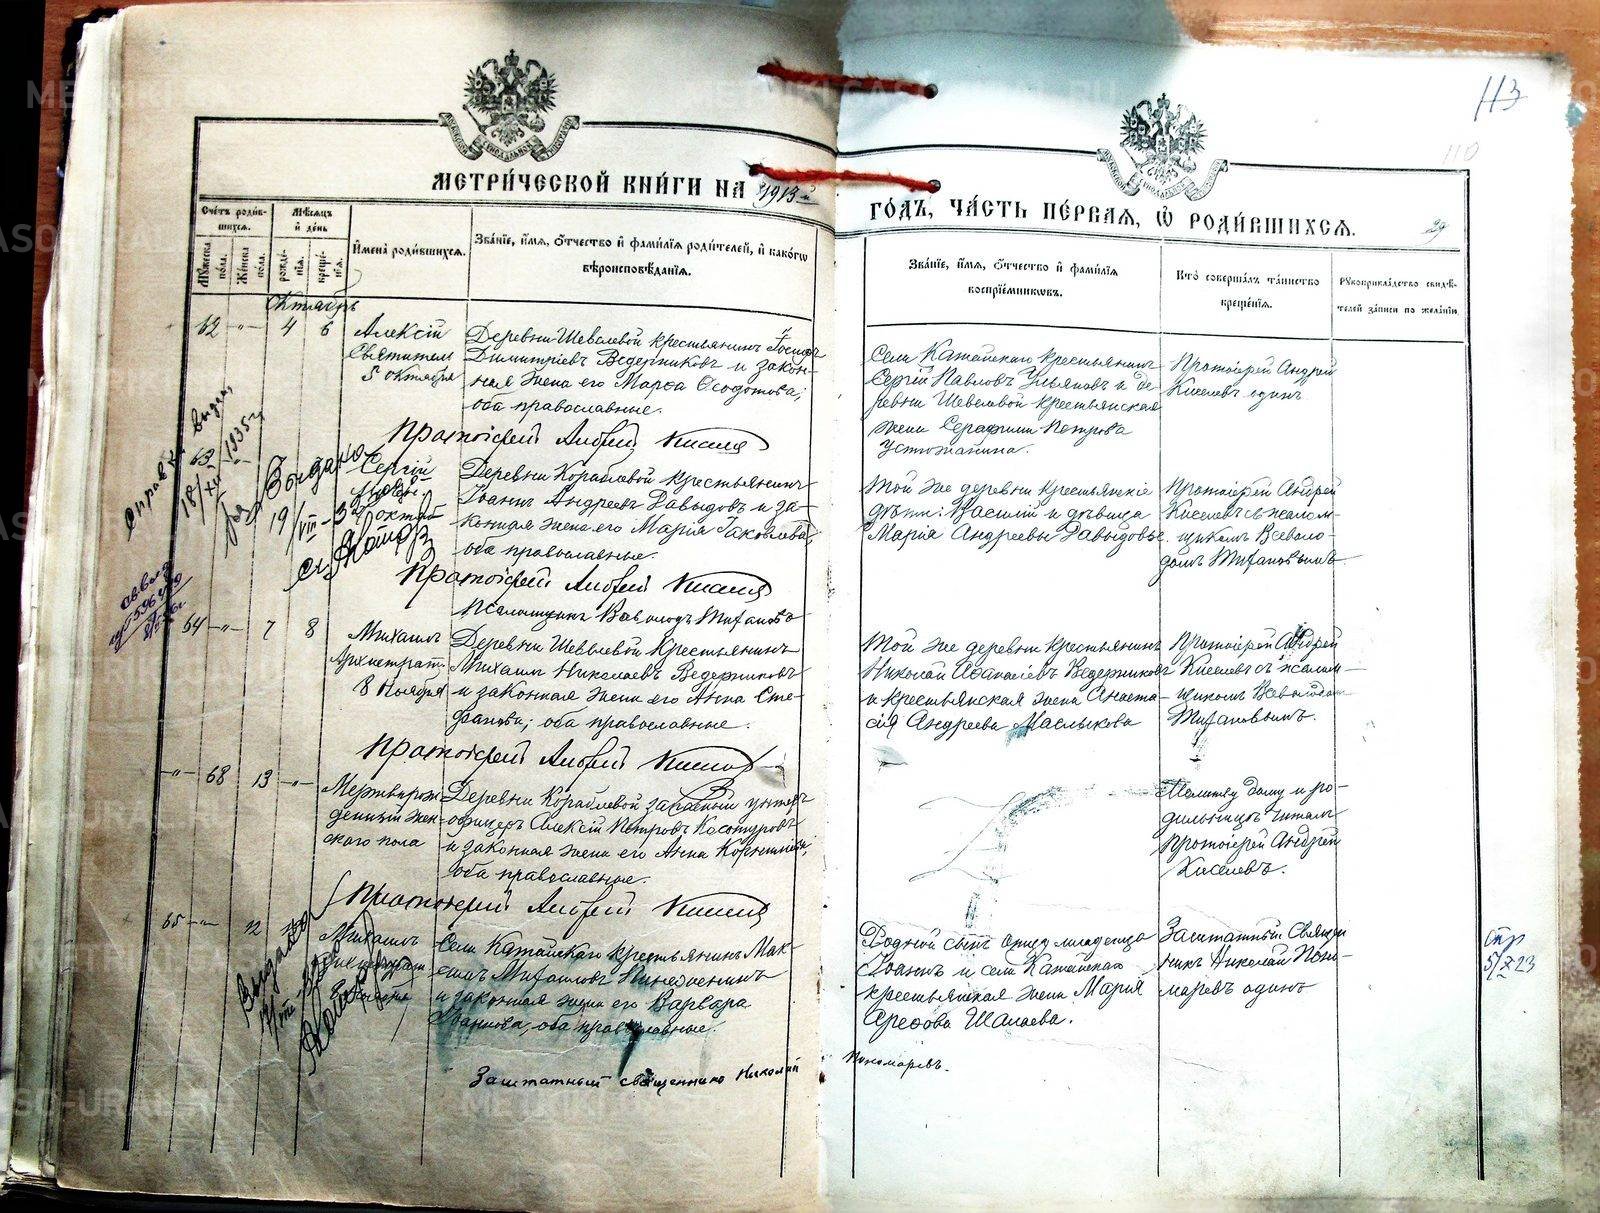 113
110
29
МЕТРИ́ЧЕСКОЙ КНИ́ГИ НА 1913-й
ГО́ДЪ, ЧА́СТЬ ПЕ́РВАЯ, Ѽ РОДИ́ВШИХСЯ.
Сче́тъ роди́в-
шихся.
Мѣ́сяцъ
и҆ де́нь
Му́жеска
по́ла.
Же́нска
по́ла.
рожде́-
нїя.
креще́-
нїя.
И҆мена̀ роди́вшихся.
Зва́нїе, и҆́мя, ѻ҆́тчество и҆ фами́лїя роди́телей, и҆ како́гѡ
вѣроисповѣ́данїя.
Зва́нїе, и҆́мя, ѻ҆́тчество и҆ фами́лїя
воспрїе́мникѡвъ.
Кто̀ соверша́лъ та́инство
креще́нїя.
Рꙋкоприкла́дство свидѣ́-
телей за́писи по жела́нїю.
Октябрь
62 -"- 4 6
Алексій
Святителя
5 октября
Деревни Шевелевой крестьянинъ
Димитріевъ Ведерниковъ и закон-
ная жена его Марѳа Ѳеодотова;
оба православные.
Протоіерей Андрей Киселев
Села Катайскаго крестьянинъ
Сергій Павловъ Ульяновъ и де-
ревни Шевелевой крестьянская
жена Серафима Петрова
Устюжанина.
Протоіерей Андрей
Киселевъ один
63
Сергій
Деревни Кораблевой крестьянинъ
Іоаннъ Андреевъ Давыдовъ и за-
конная жена его Марія Іаковлева,
оба православные.
Протоіерей Андрей Киселев
Псаломщикъ Всеволодъ Тифановъ
Той же деревни крестьянскіе
дѣти: Василій и дѣвица
Марія Андреевы Давыдовы.
Протоіерей Андрей
Киселевъ съ псалом-
щикомъ Всеволо-
домъ Тифановымъ.
64 -"- 7 8
Михаилъ
Архистратиг
8 Ноября
Деревни Шевелевой Крестьянинъ
Михаилъ Николаевъ Ведерниковъ
и законная жена его Анна Сте-
фанова; оба православные.
Протоіерей Андрей Киселев
Той же деревни крестьянинъ
Николай Аѳанасіевъ Ведерниковъ
и крестьянская жена Анаста-
сія Андреева Маслыкова
Протоіерей Андрей
Киселевъ съ псалом-
щикомъ Всеволодом
Тифановымъ.
-"- 68 13 -"-
Мертворож-
денный жен-
скаго пола
Деревни Кораблевой запасный унтеръ
офицеръ Алексій Петровъ
и законная жена его Анна
оба православные.
Протоіерей Андрей Киселев
Молитву дому и ро-
дильницѣ читалъ
Протоіерей Андрей
Киселевъ.
65 -"- 12
Михаилъ
Села Катайскаго крестьянинъ Мак-
симъ Михаиловъ
и законная жена его Варвара
Іоаннова, оба православные.
Заштатный священникъ Николай
Пономаревъ.
Родной сынъ отцу младенца
Іоаннъ и села Катайскаго
крестьянская жена Марія
Ареѳова Шалаева.
Заштатный Священ-
никъ Николай Поно-
маревъ одинъ
справка выдана
18/XII 1935 г.
Выдано
19/VIII-32
Выдано
стр
5/X 23